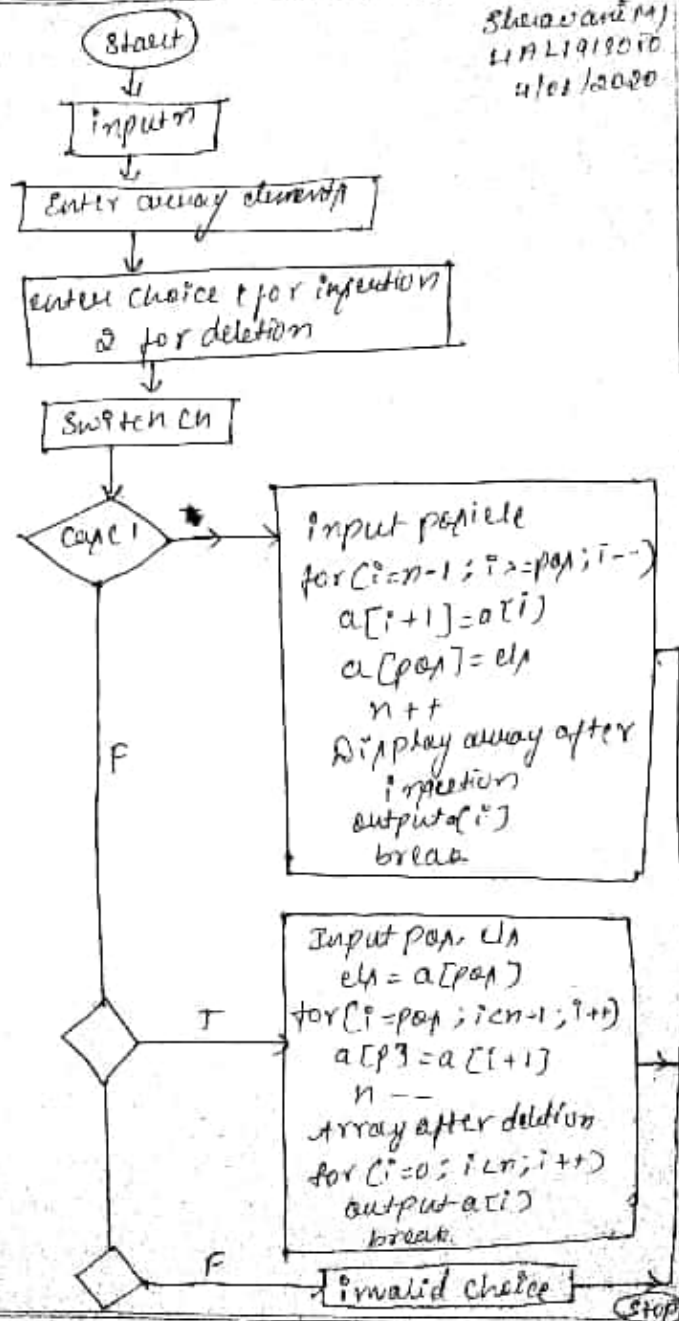 Start
4AL19IS050
4/01/2020
input n
Enter array elements
enter choice 1 for insertion
2 for deletion
Switch ch
Case 1
input pos, ele
for(i=n-1; i>=pos; i--)
a[i+1]=a[i]
a[pos]=ele
n++
Display array after
insertion
output a[i]
break
F
Input pos, ele
ele = a[pos]
T
for(i=pos; i<n-1; i++)
a[i]=a[i+1]
n--
Array after deletion
for(i=0; i<n; i++)
output a[i]
break
F
invalid choice
Stop